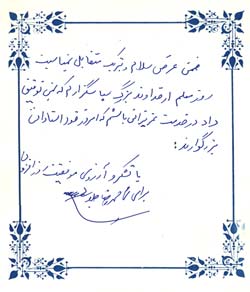 ضمن عرض سلام و تبریک متقابل بمناسبت
روز معلم از خداوند بزرگ سپاسگزارم که چنین توفیقی
داد در خدمت عزیزانی باشم که امروز خود استادان
بزرگوارند:
با تشکر و آرزوی موفقیت روزافزون
برای